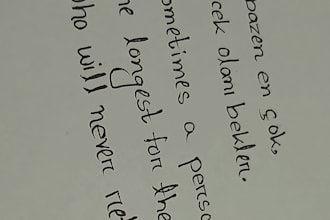 bazen en çok,
cek olanı bekler.
ometimes a perso
he longest for the
ho will never